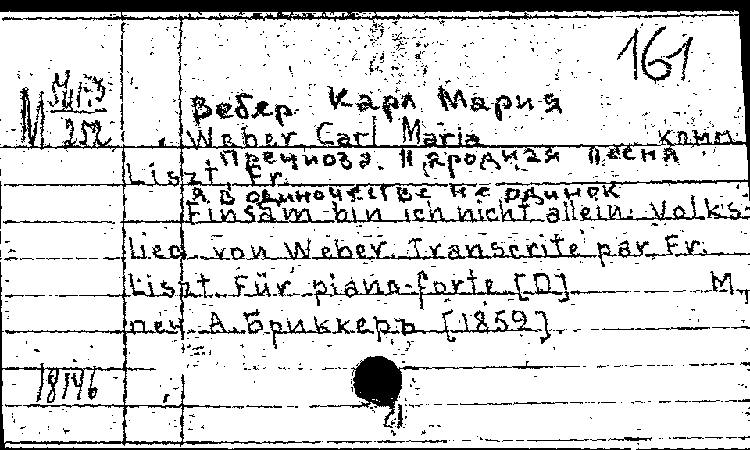 161
М
252
Вебер Карл Мария
Weber Carl Maria комп.
Прециоза. Народная песня
Liszt Fr.
Я в одиночестве не одинок
Einsam bin ich nicht allein. Volks-
lied von Weber. Transcrite par Fr.
Liszt. Für piano-forte [D] М.,
печ. А. Бриккеръ [1859]
18746